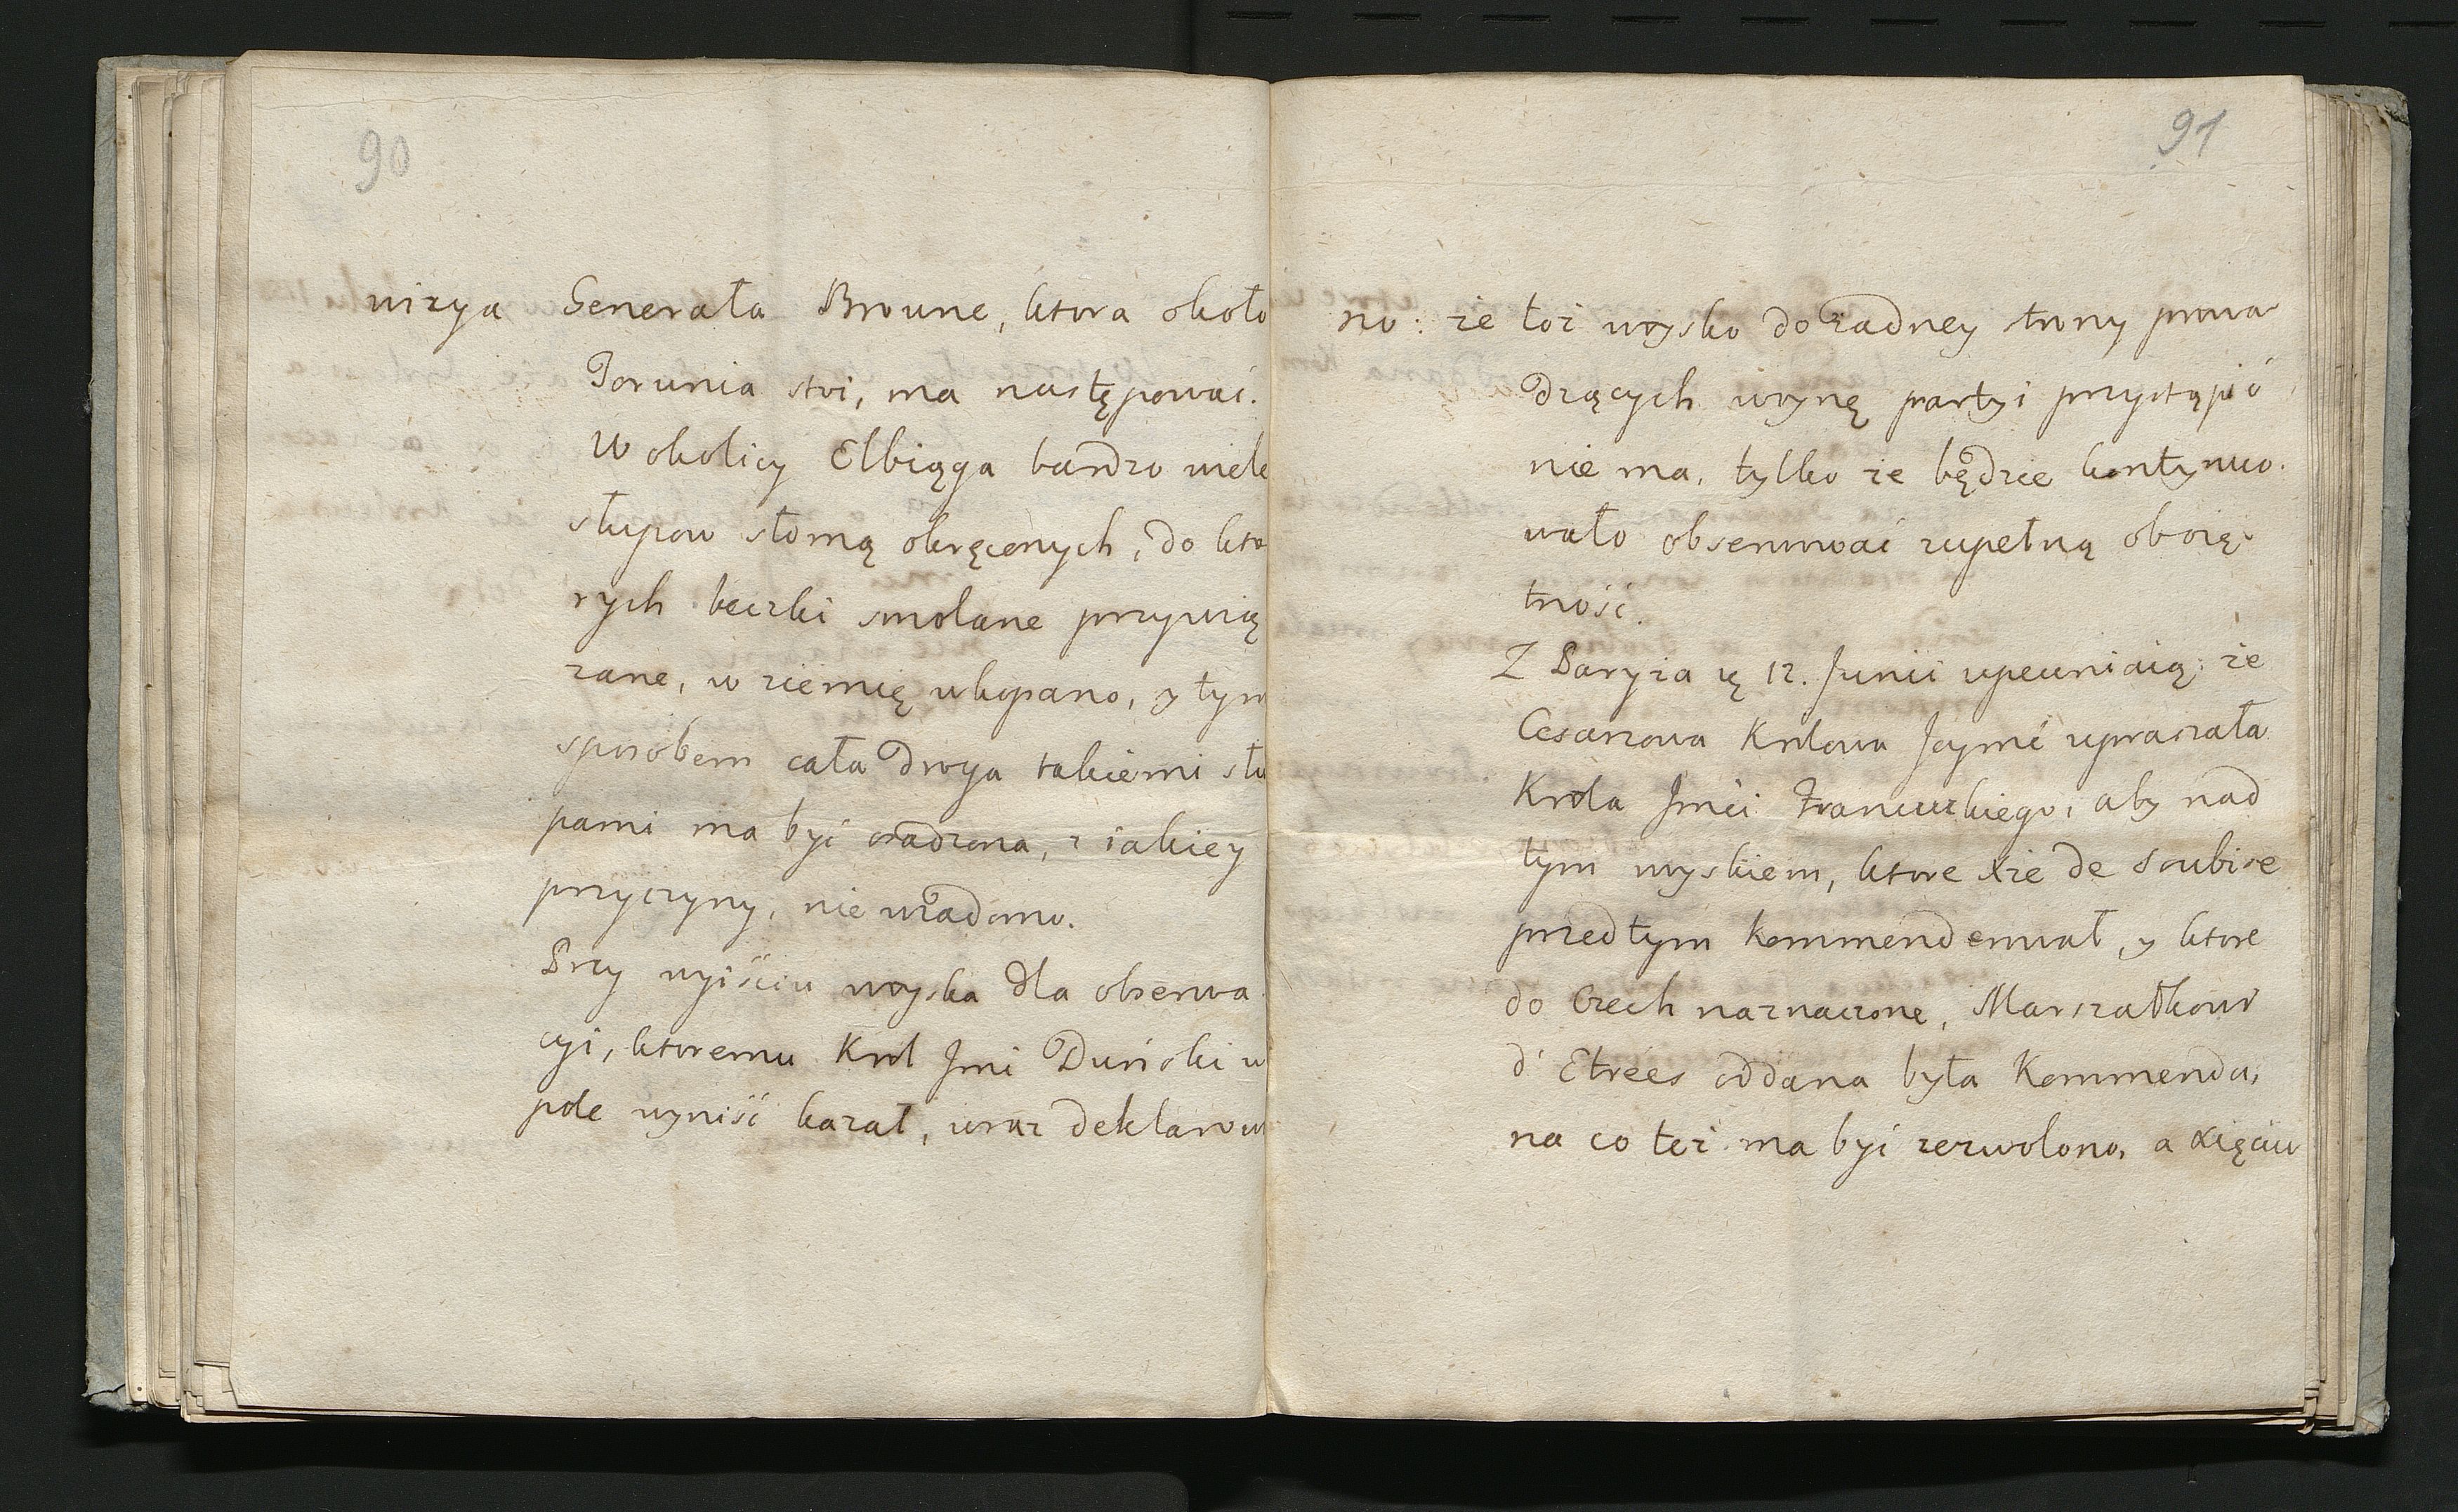 90
wizya Generała Broune, ktora około
Torunia stoi, ma następować.
W okolicy Elbiąga bardzo wiele
słupow słomą okręconych, do kto
rych beczki smolane przywią
zane, w ziemię wkopano, y tym
sposobem cała droga takiemi słu
pami ma być osadzona, z iakiey
przyczyny, nie wiadomo.
Przy wyiściu woyska dla obserwa
cyi, ktoremu Krol Jmć Duński w
pole wyniść kazał, wraz deklarowa
91
no: że toż woysko do żadney strony prowa
dzących woynę partyi przystąpić
nie ma, tylko że będzie kontynuo
wało obserwować zupełną oboię
tność.
Z Paryża 12. Junii upewniaią: że
Cesarzowa Krolowa Jeymć upraszała
Krola Jmći Francuzkiego, aby nad
tym woyskiem, ktore Xże de Soubise
przedtym kommenderował, y ktore
do Czech naznaczone, Marszałkowi
d' Etrées oddana była Kommenda,
na co też ma być zezwolono, a Xięciu